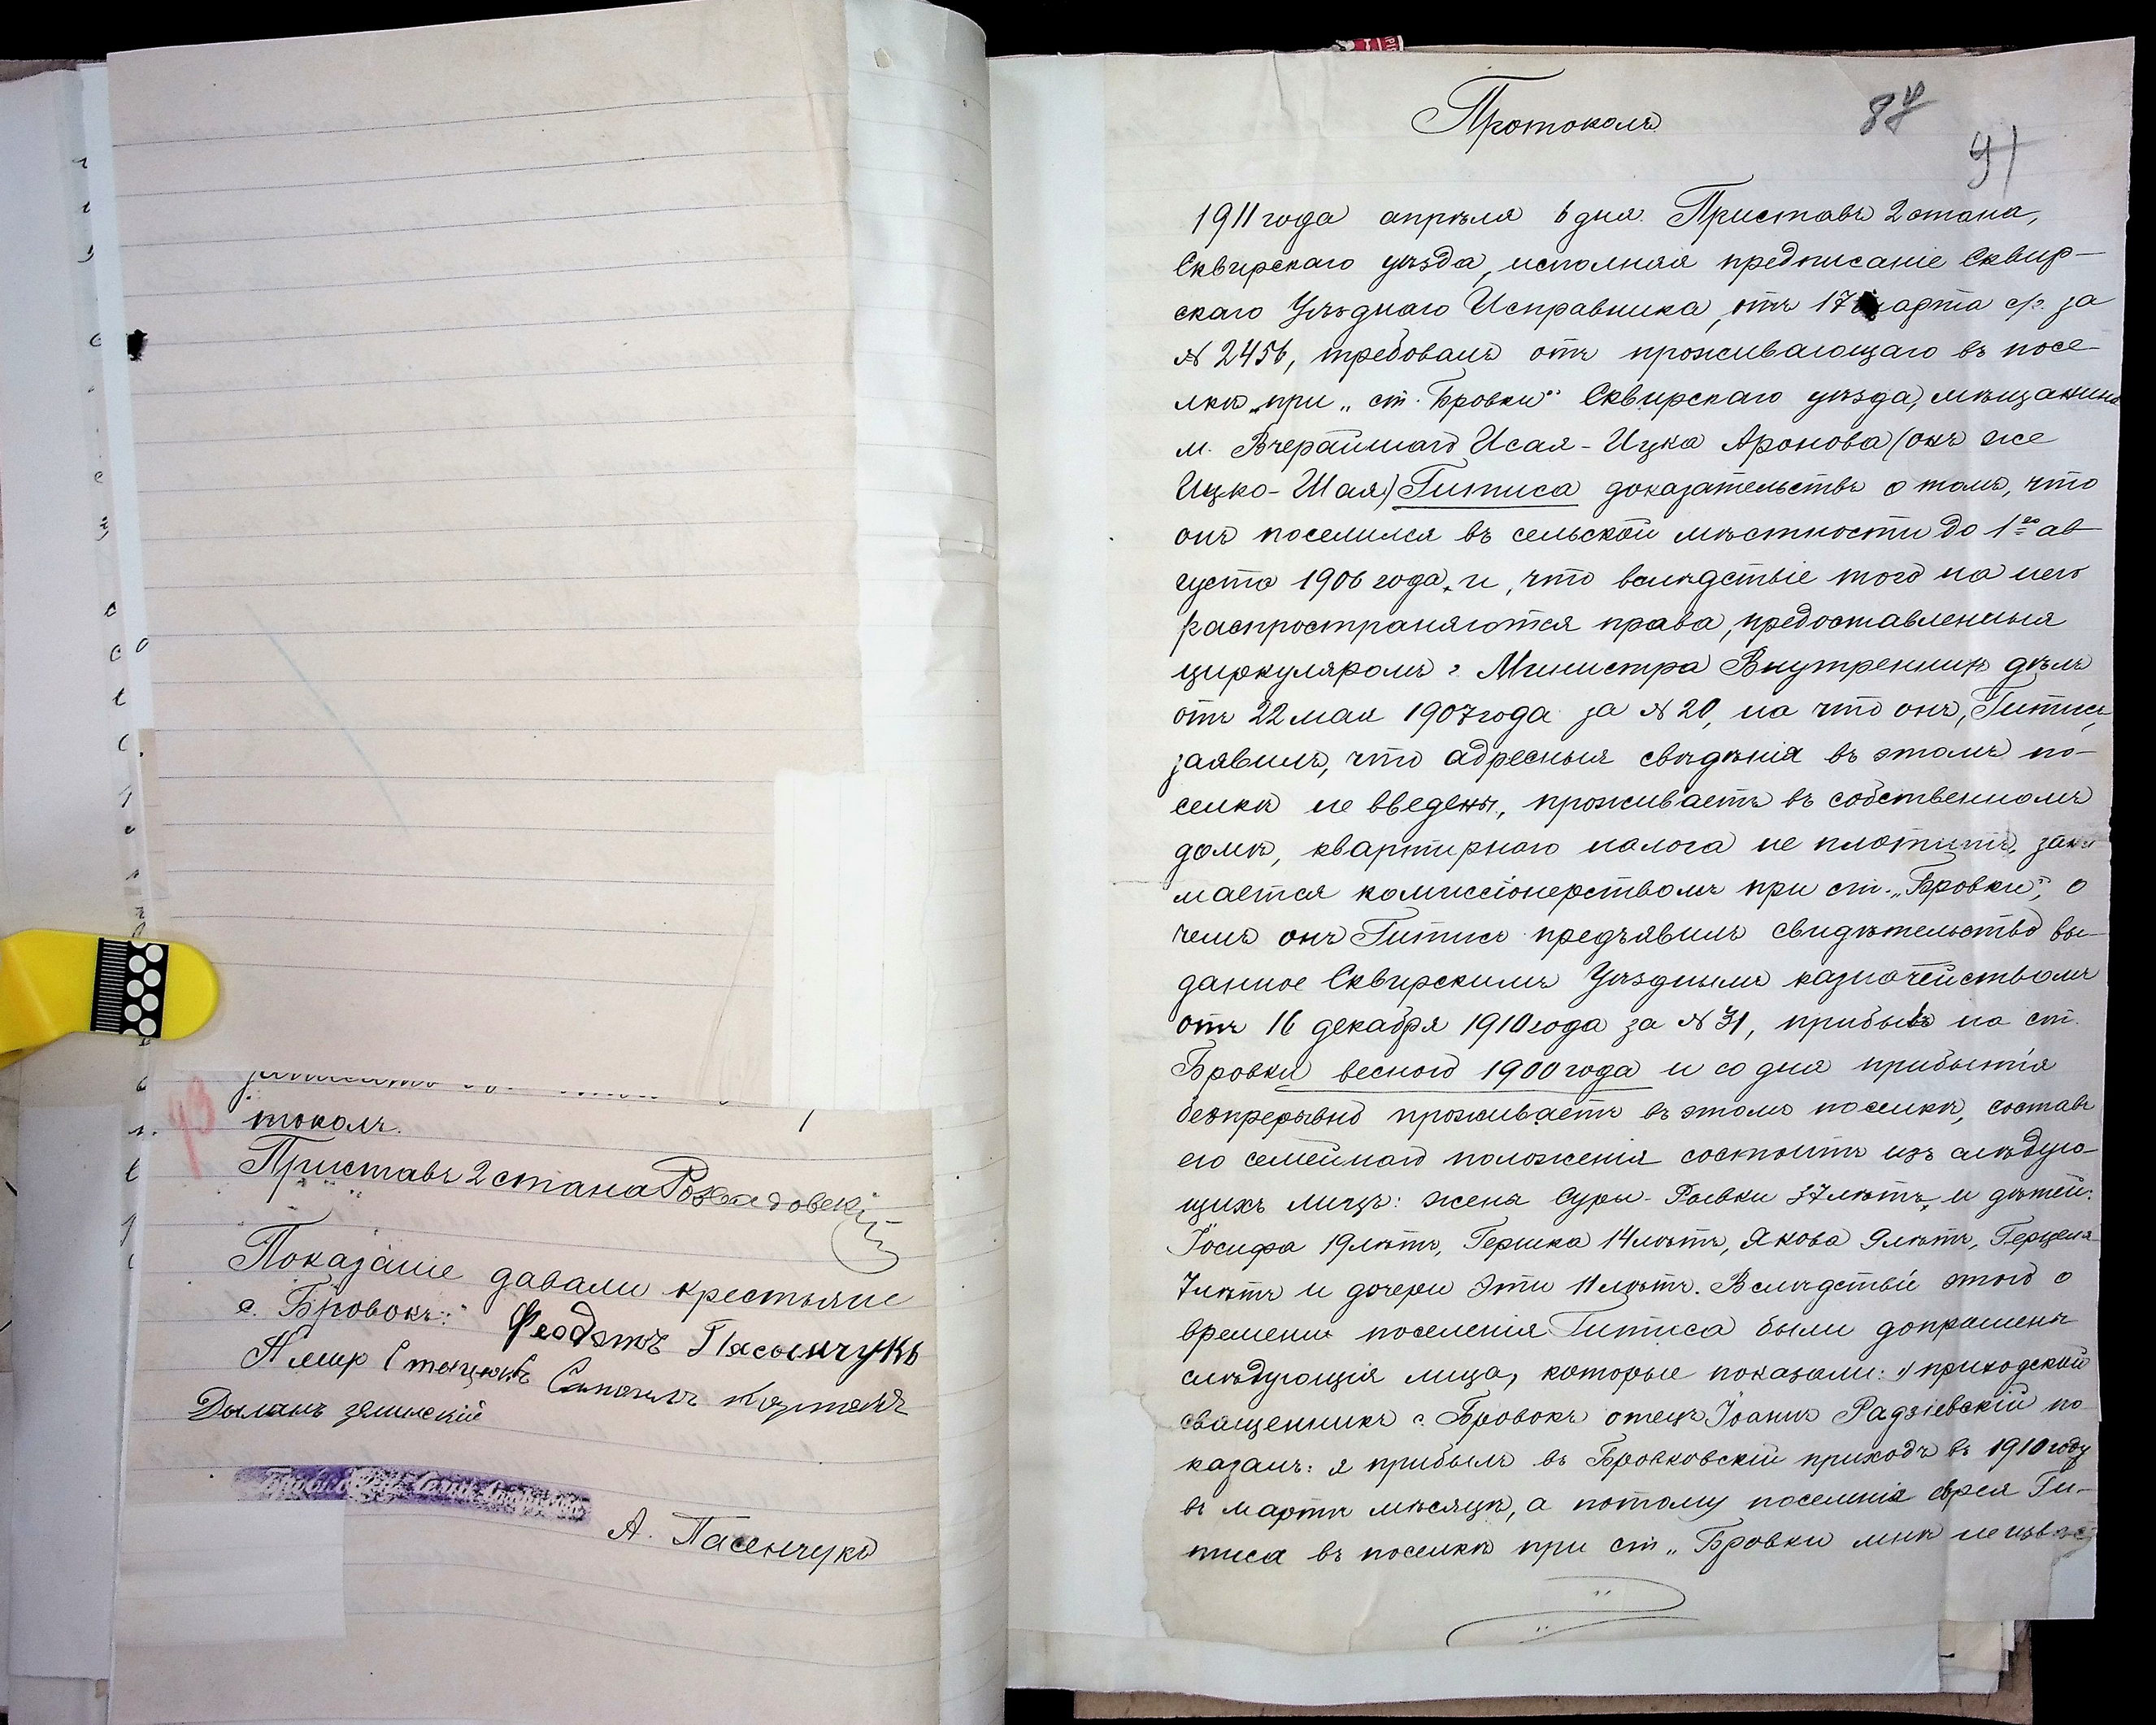 токолъ.
Приставъ 2 стана
Показаніе давали крестьяне
с. Бровокъ: Феодотъ Пасынчукъ
А. Пасенчукъ
Протоколъ
87
91
1911 года апрѣля 6 дня. Приставъ 2 стана,
Сквирскаго уѣзда, исполняя предписаніе Сквир-
скаго Уѣзднаго Исправника, отъ 17 марта с/г. за
№ 2456, требовалъ отъ проживающаго въ посе-
лкѣ при „ст. Бровки" Сквирскаго уѣзда, мѣщанина
м. Вчерайшаго Исая-Ицка Аронова (онъ же
Ицко-Шая) Гитиса доказательствъ о томъ, что
онъ поселился въ сельской мѣстности до 1го ав-
густа 1906 года и, что вслѣдствіе того на него
распространяются права, предоставленныя
циркуляромъ г. Министра Внутреннихъ дѣлъ
отъ 22 мая 1907 года за № 20, на что онъ, Гитисъ,
заявилъ, что адресныя свѣдѣнія въ этомъ по-
селкѣ не введены, проживаетъ въ собственномъ
домѣ, квартирнаго налога не платитъ, зани
мается комиссіонерствомъ при ст. „Бровки", о
чемъ онъ Гитисъ предъявилъ свидѣтельство вы-
данное Сквирскимъ Уѣзднымъ казначействомъ
отъ 16 декабря 1910 года за № 31, прибылъ на ст.
Бровки весною 1900 года и со дня прибытія
безпрерывно проживаетъ въ этомъ поселкѣ, составъ
его семейнаго положенія состоитъ изъ слѣдую-
щихъ лицъ: жены Суры-Ривки 37 лѣтъ, и дѣтей:
Іосифа 19 лѣтъ, Гершка 14 лѣтъ, Якова 9 лѣтъ, Герцеля
7 лѣтъ и дочери Эти 11 лѣтъ. Вслѣдствіи этого о
времени поселенія Гитиса были допрошены
слѣдующія лица, которые показали: 1) приходской
священникъ с. Бровокъ отецъ Іоаннъ Радзіевскій по
казалъ: я прибылъ въ Бровковскій приходъ въ 1910 году
въ мартѣ мѣсяцѣ, а потому поселенія еврея Ги-
тиса въ поселкѣ при ст. „Бровки мнѣ неизвѣс